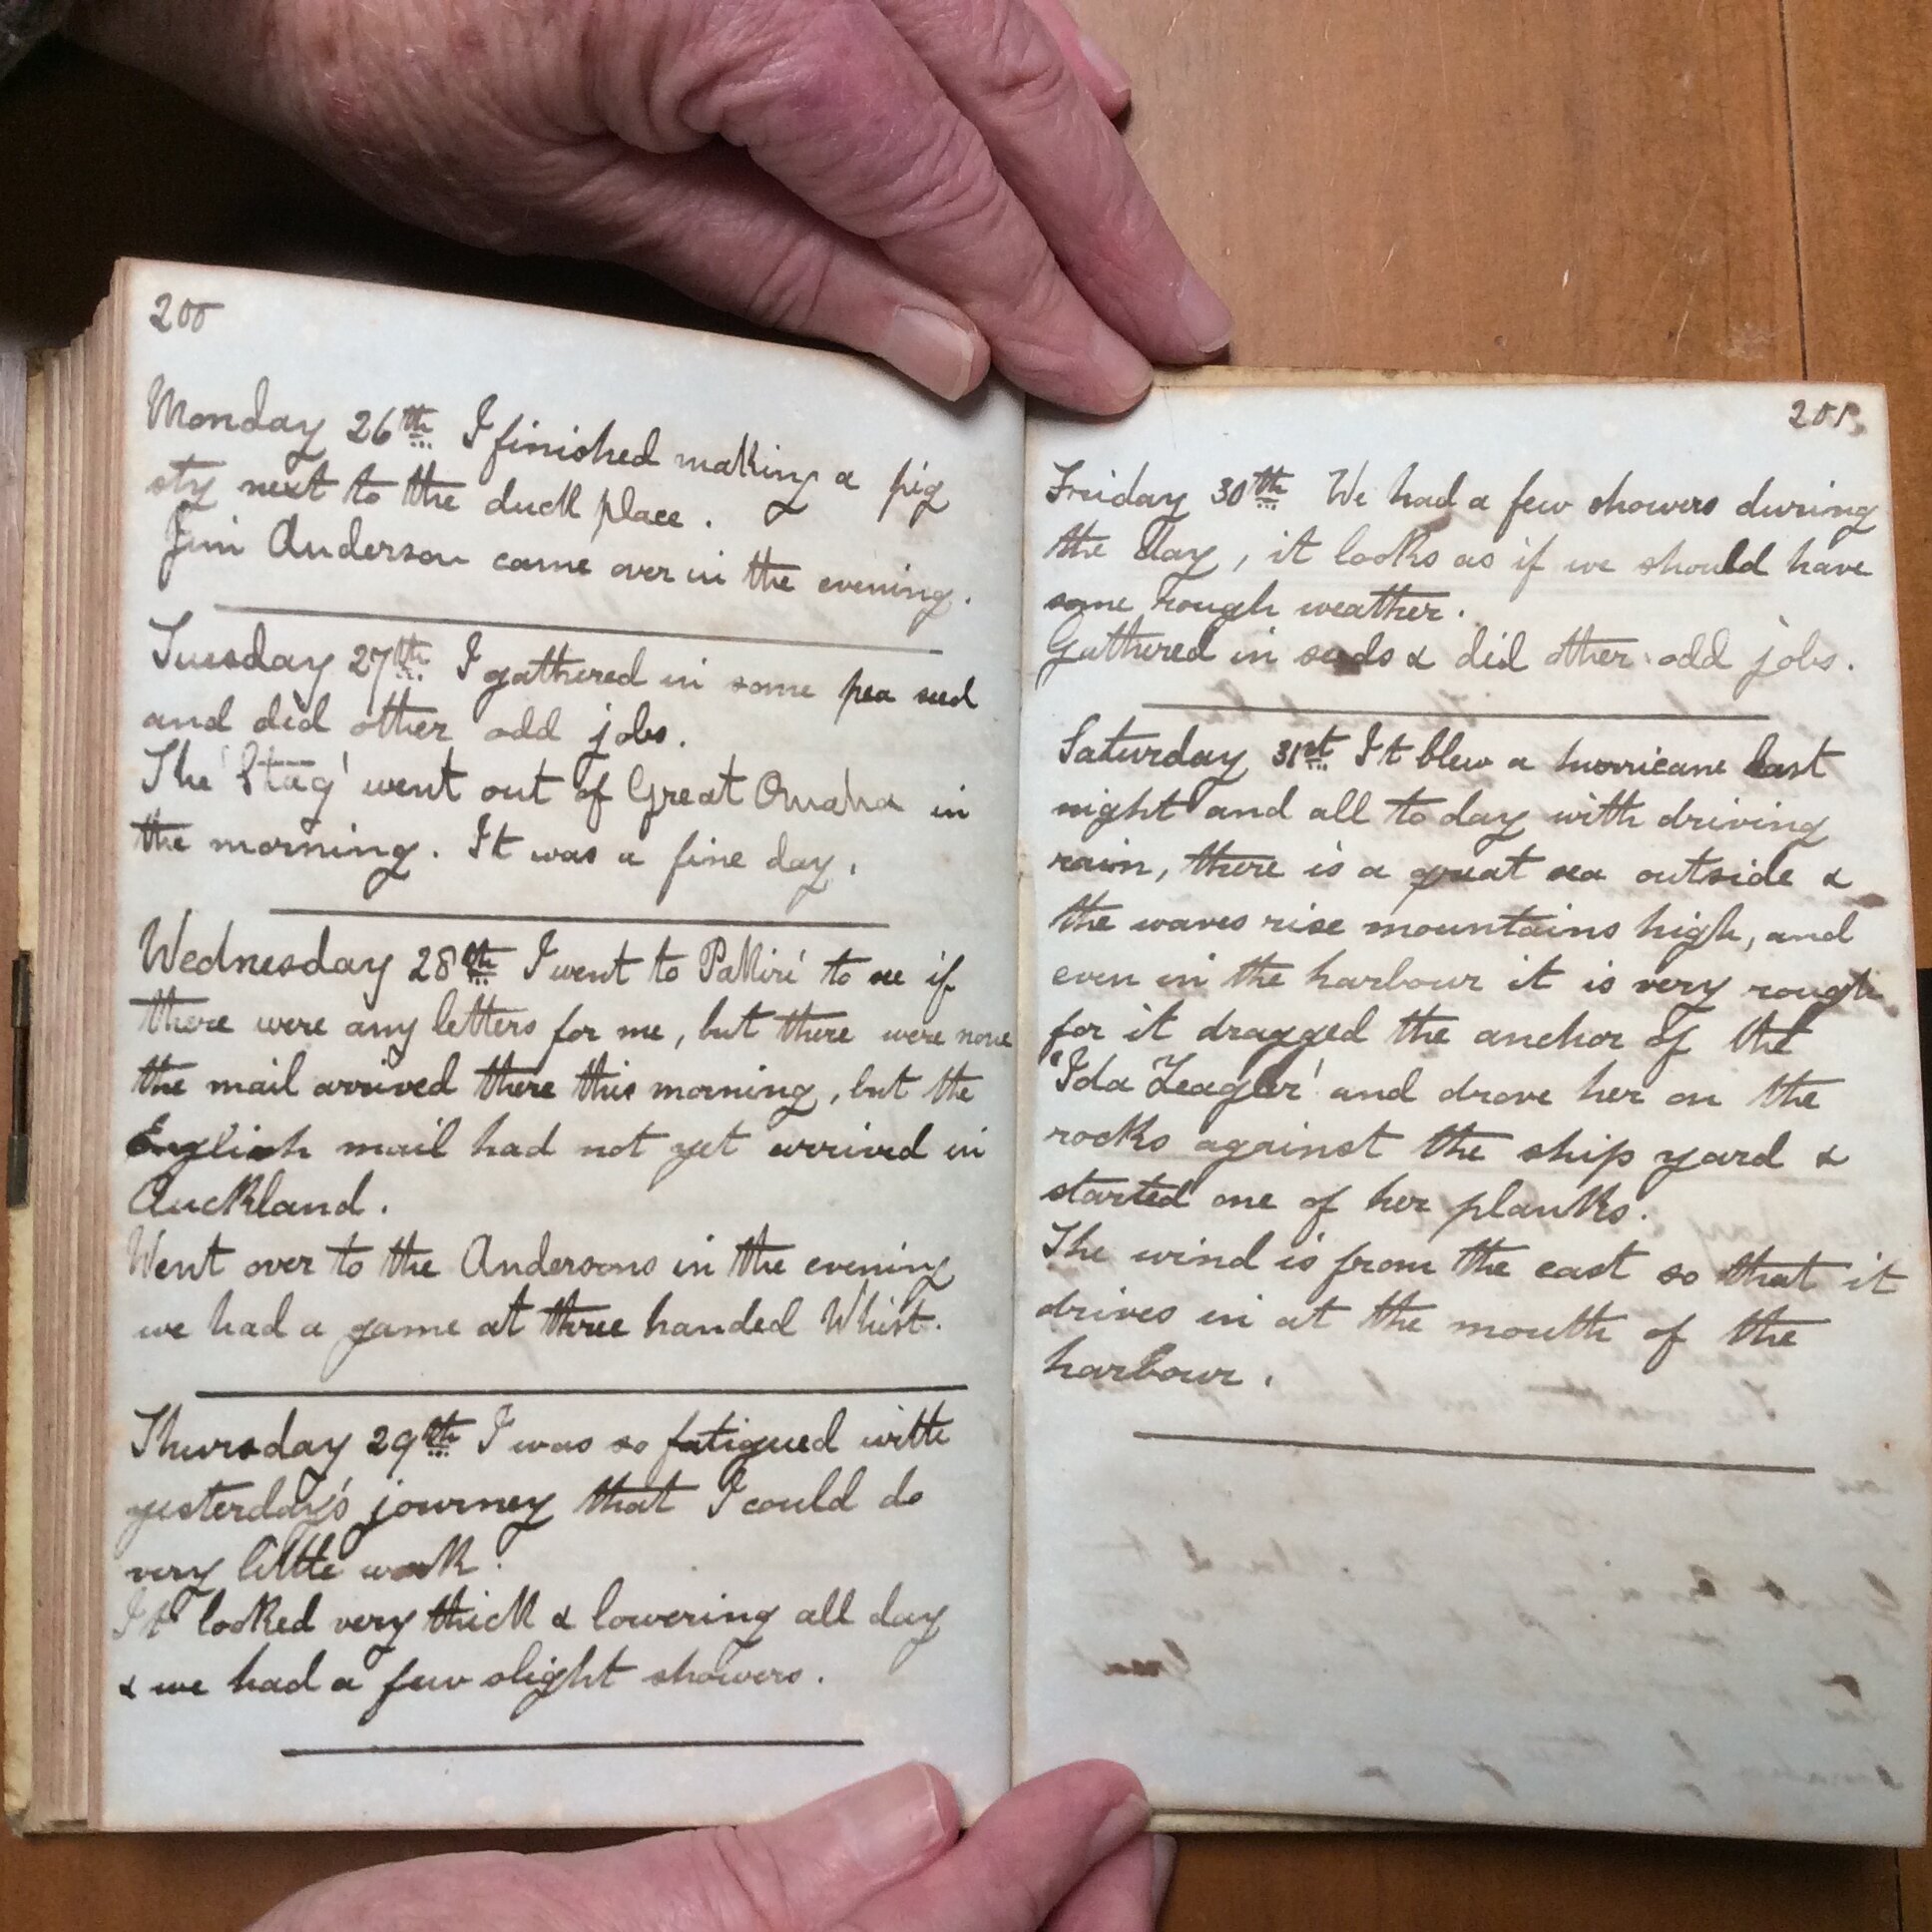 200
Monday 26th I finished making a pig
sty next to the duck place.
Jim Anderson came over in the evening.
Tuesday 27th I gathered in some pea seed
and did other odd jobs.
The 'Stag' went out of Great Omaha in
the morning. It was a fine day.
Wednesday 28th I went to Pakiri to see if
there were any letters for me, but there were none
the mail arrived there this morning, but the
English mail had not yet arrived in
Auckland.
Went over to the Andersons in the evening
we had a game at three handed Whist.
Thursday 29th I was so fatigued with
yesterday's journey that I could do
very little work.
It looked very thick & lowering all day
& we had a few slight showers.
201
Friday 30th We had a few showers during
the day, it looks as if we should have
some rough weather.
Gathered in seeds & did other odd jobs.
Saturday 31st It blew a hurricane last
night and all to day with driving
rain, there is a great sea outside &
the waves rise mountains high, and
even in the harbour it is very rough
for it dragged the anchor of the
'Ida Zeagler' and drove her on the
rocks against the ship yard &
started one of her planks.
The wind is from the east so that it
drives in at the mouth of the
harbour.